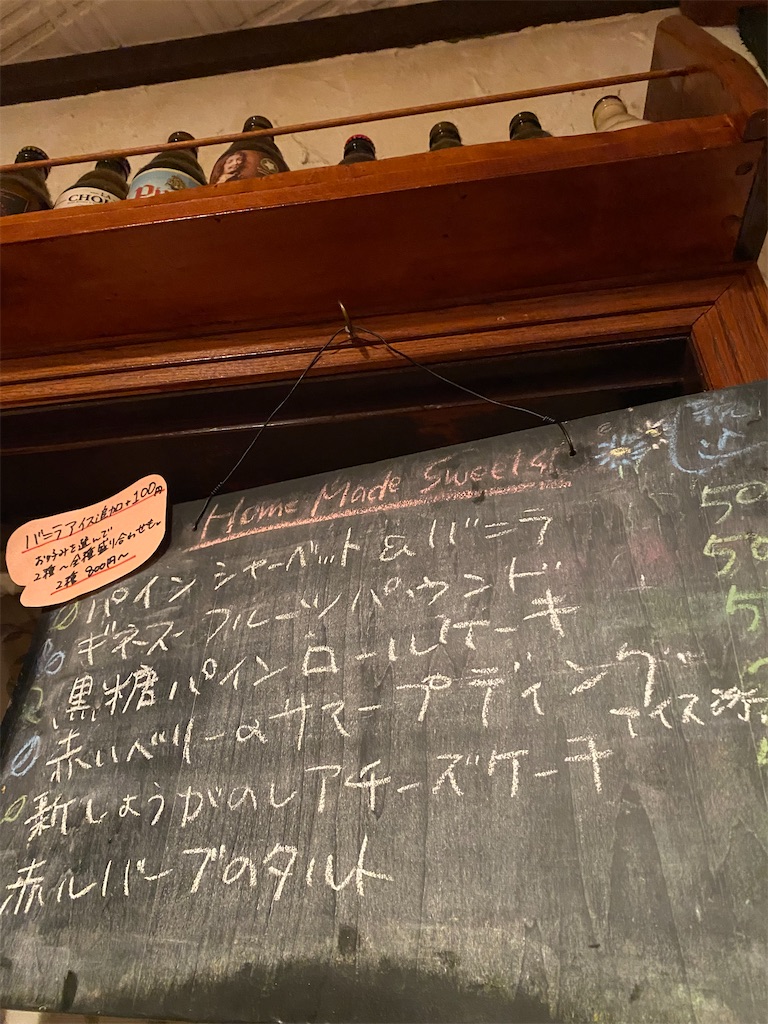 CHO
Home Made Sweets!
バニラアイス追加+100円
お好みを選んで
2種〜全種盛り合わせも。
2種 900円〜
パインシャーベット&バニラ
50
ギネスフルーツパウンド
50
黒糖パインロールケーキ
5
赤いベリーのサマープディング
アイス添
新しょうがのレアチーズケーキ
赤ルバーブのタルト